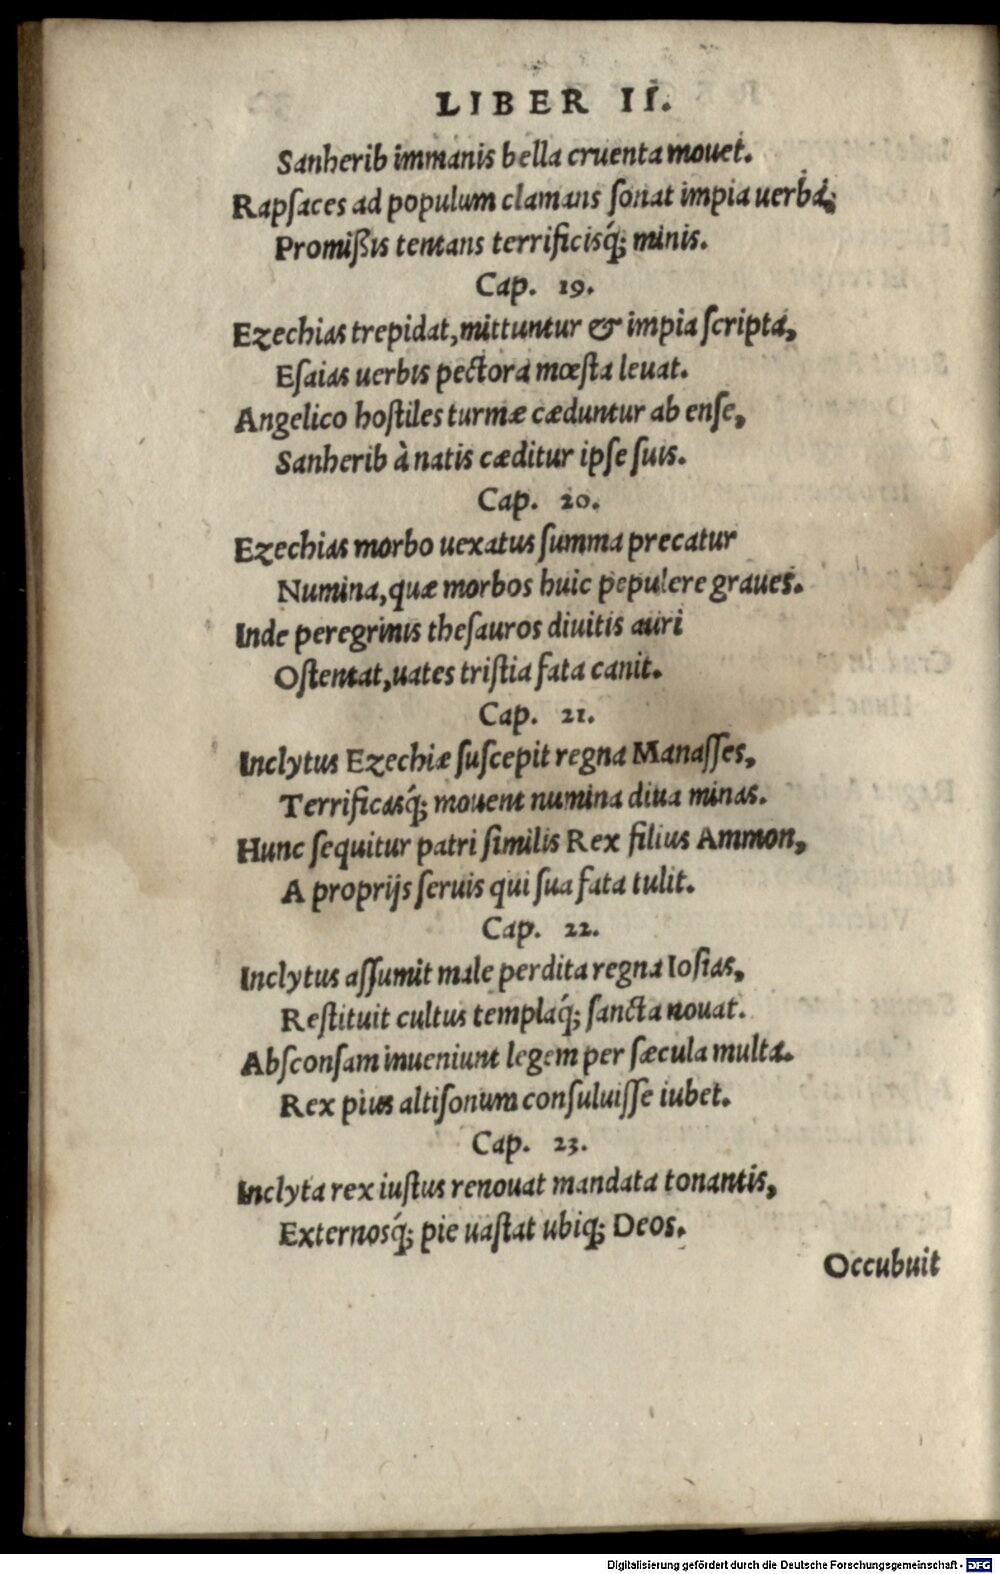 LIBER II.
Sanherib immanis bella cruenta mouet.
Rapſaces ad populum clamans ſonat impia uerba,
Promiſsis tentans terrificisq́; minis.
Cap. 19.
Ezechias trepidat, mittuntur & impia ſcripta,
Eſaias uerbis pectora mœſta leuat.
Angelico hoſtiles turmæ cæduntur ab enſe,
Sanherib à natis cæditur ipſe ſuis.
Cap. 20.
Ezechias morbo uexatus ſumma precatur
Numina, quæ morbos huic pepulere graues.
Inde peregrinis theſauros diuitis auri
Oſtentat, uates triſtia fata canit.
Cap. 21.
Inclytus Ezechiæ ſuſcepit regna Manaſſes,
Terrificasq́; mouent numina diua minas.
Hunc ſequitur patri ſimilis Rex filius Ammon,
A proprijs ſeruis qui ſua fata tulit.
Cap. 22.
Inclytus aſſumit male perdita regna Ioſias,
Reſtituit cultus templaq́; ſancta nouat.
Abſconſam inueniunt legem per ſæcula multa.
Rex pius altiſonum conſuluiſſe iubet.
Cap. 23.
Inclyta rex iuſtus renouat mandata tonantis,
Externosq́; pie uaſtat ubiq; Deos.
Occubuit
Digitalisierung gefördert durch die Deutsche Forschungsgemeinschaft - DFG